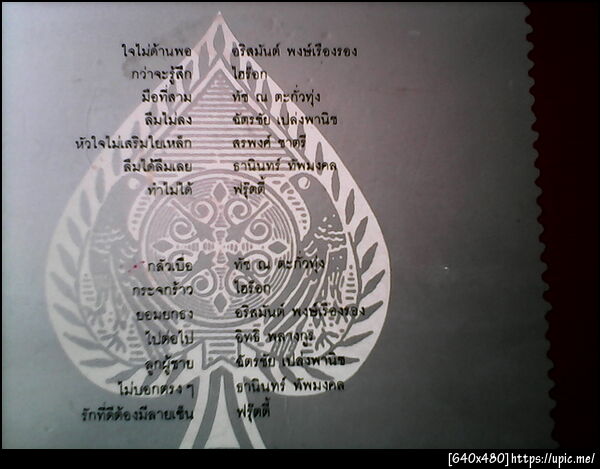 ใจไม่ด้านพอ อริสมันต์ พงษ์เรืองรอง
กว่าจะรู้สึก ไฮร็อก
มือที่สาม ทัช ณ ตะกั่วทุ่ง
ลืมไม่ลง ฉัตรชัย เปล่งพานิช
หัวใจไม่เสริมใยเหล็ก สรพงศ์ ชาตรี
ลืมได้ลืมเลย ธานินทร์ ทัพมงคล
ทำไม่ได้ ฟรุ๊ตตี้
กลัวเบื่อ ทัช ณ ตะกั่วทุ่ง
กระจกร้าว ไฮร็อก
ยอมยกธง อริสมันต์ พงษ์เรืองรอง
ไปต่อไป อิทธิ พลางกูร
ลูกผู้ชาย ฉัตรชัย เปล่งพานิช
ไม่บอกตรงๆ ธานินทร์ ทัพมงคล
รักที่ดีต้องมีลายเซ็น ฟรุ๊ตตี้
[640x480]https://upic.me/